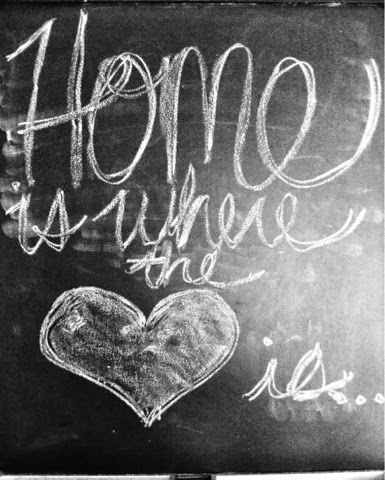 Home
is where
the
is...